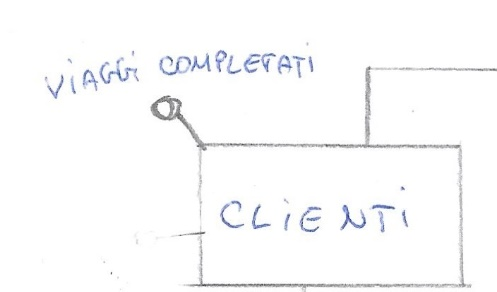 VIAGGI COMPLETATI
CLIENTI